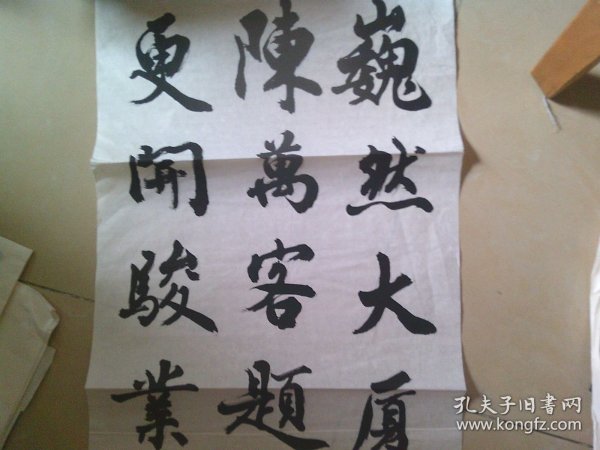 巍然大厦
陳萬客題
更開駿業
孔夫子旧書网
www.kongfz.com